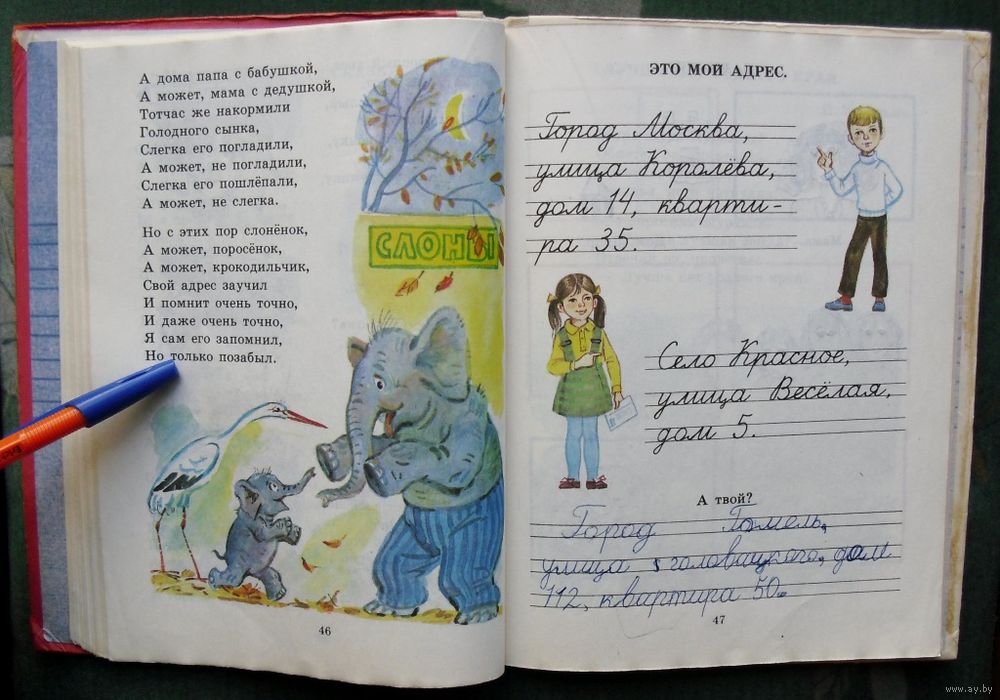 А дома папа с бабушкой,
А может, мама с дедушкой,
Тотчас же накормили
Голодного сынка,
Слегка его погладили,
А может, не погладили,
Слегка его пошлёпали,
А может, не слегка.
Но с этих пор слонёнок,
А может, поросёнок,
А может, крокодильчик,
Свой адрес заучил
И помнит очень точно,
И даже очень точно,
Я сам его запомнил,
Но только позабыл.
СЛОНЫ
46
ЭТО МОЙ АДРЕС.
Город Москва,
улица Королёва,
дом 14, кварти-
ра 35.
Село Красное,
улица Весёлая,
дом 5.
А твой?
Город Гомель,
улица головацкого, дом
112, квартира 50.
47
www.ay.by